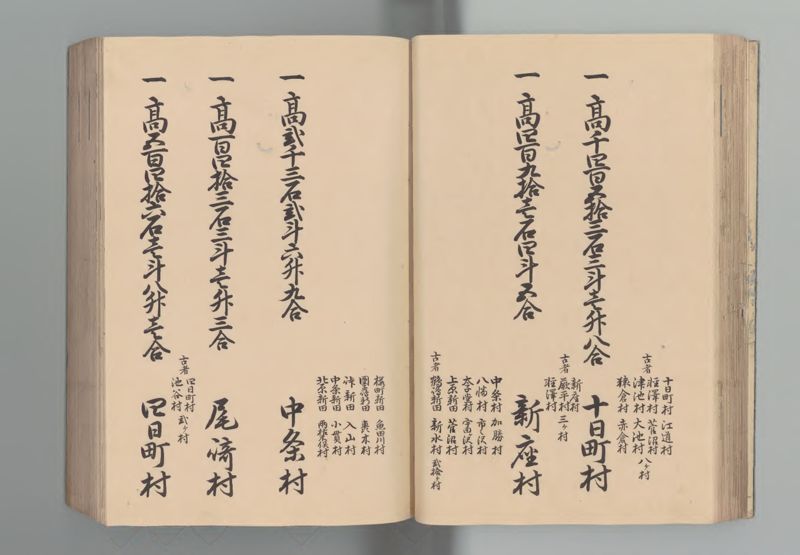 十日町村 江道村
軽澤村 菅沼村
古者
津池村 大池村 八ヶ村
猿倉村 赤倉村
一 高千四百五拾三石三斗壱升八合 十日町村
新座村
古者 嚴平村 三ヶ村
軽澤村
一 高四百九拾壱石四斗五合 新座村
中条村 加勝村
八幡村 市之沢村
太子堂村
上原新田 菅沼村
古者 新田 新水村 弐拾ヶ村
桜町新田 魚田川村
新田 村
峠新田 入山村
中条新田 小貫村
北原新田
一 高弐千三石弐斗六升九合 中条村
一 高百四拾三石三斗壱升三合 尾崎村
古者 四日町村 弐ヶ村
池谷村
一 高五百四拾六石壱斗八升壱合 四日町村